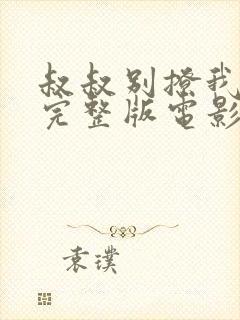 叔叔别撩我
完整版电影
袁璞